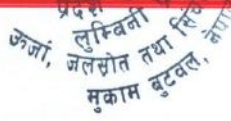 प्रदेश
लुम्बिनी
ऊर्जा, जलस्रोत तथा
मुकाम बुटवल,